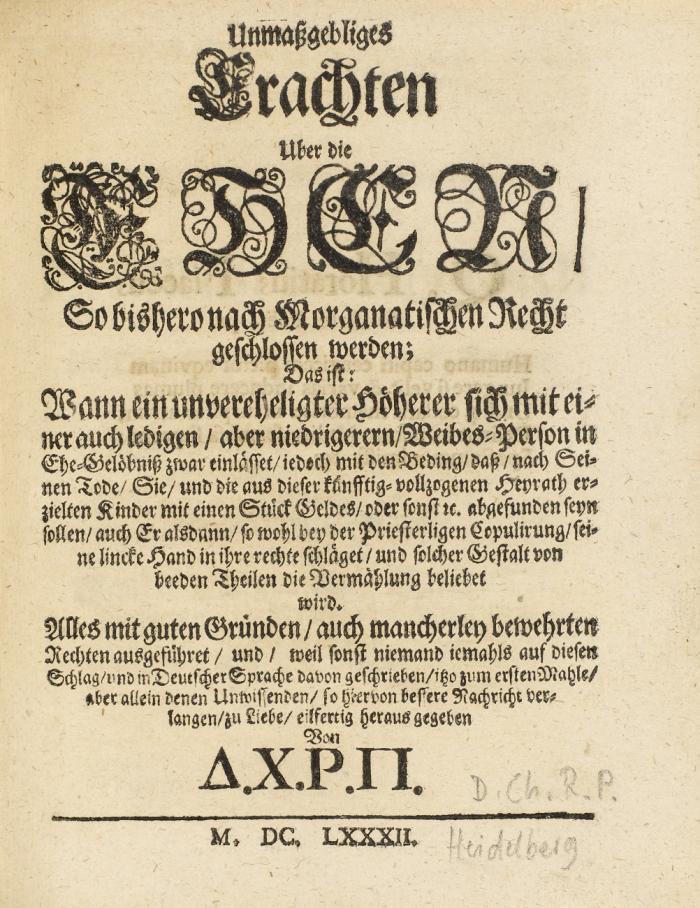 Unmaßgebliges
Erachten
Uber die
EHEN/
So bishero nach Morganatischen Recht
geschlossen werden;
Das ist:
Wann ein unvereheligter Höherer sich mit ei-
ner auch ledigen / aber niedrigerern / Weibes-Person in
Ehe-Gelöbniß zwar einlässet / iedoch mit den Beding / daß / nach Sei-
nen Tode / Sie / und die aus dieser künfftig-vollzogenen Heyrath er-
zielten Kinder mit einen Stück Geldes / oder sonst ꝛc. abgefunden seyn
sollen / auch Er alsdann / so wohl bey der Priesterligen Copulirung / sei-
ne lincke Hand in ihre rechte schläget / und solcher Gestalt von
beeden Theilen die Vermählung beliebet
wird.
Alles mit guten Gründen / auch mancherley bewehrten
Rechten ausgeführet / und / weil sonst niemand iemahls auf diesen
Schlag / und in Deutscher Sprache davon geschrieben / itzo zum ersten Mahle /
aber allein denen Unwissenden / so hiervon bessere Nachricht ver-
langen / zu Liebe / eilfertig heraus gegeben
Von
Δ.Χ.Ρ.Π.
D. Ch. R. P.
M. DC. LXXXII.
Heidelberg